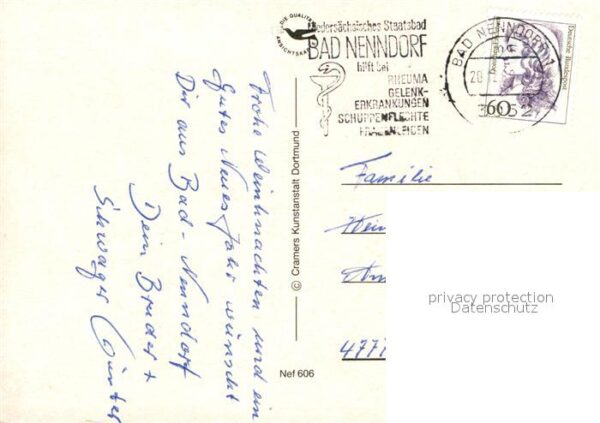 Frohe Weinhnachten und ein
Gutes Neues Jahr wünscht
Dir aus Bad-Nenndorf
Dein Bruder +
Schwager Günter
DIE QUALITÄTS
ANSICHTSKARTE
Niedersächsisches Staatsbad
BAD NENNDORF
hilft bei
RHEUMA
GELENK-
ERKRANKUNGEN
SCHUPPENFLECHTE
FRAUENLEIDEN
BAD NENNDORF 1
20
3052
Deutsche Bundespost
60
© Cramers Kunstanstalt Dortmund
Nef 606
Familie
4777
privacy protection
Datenschutz